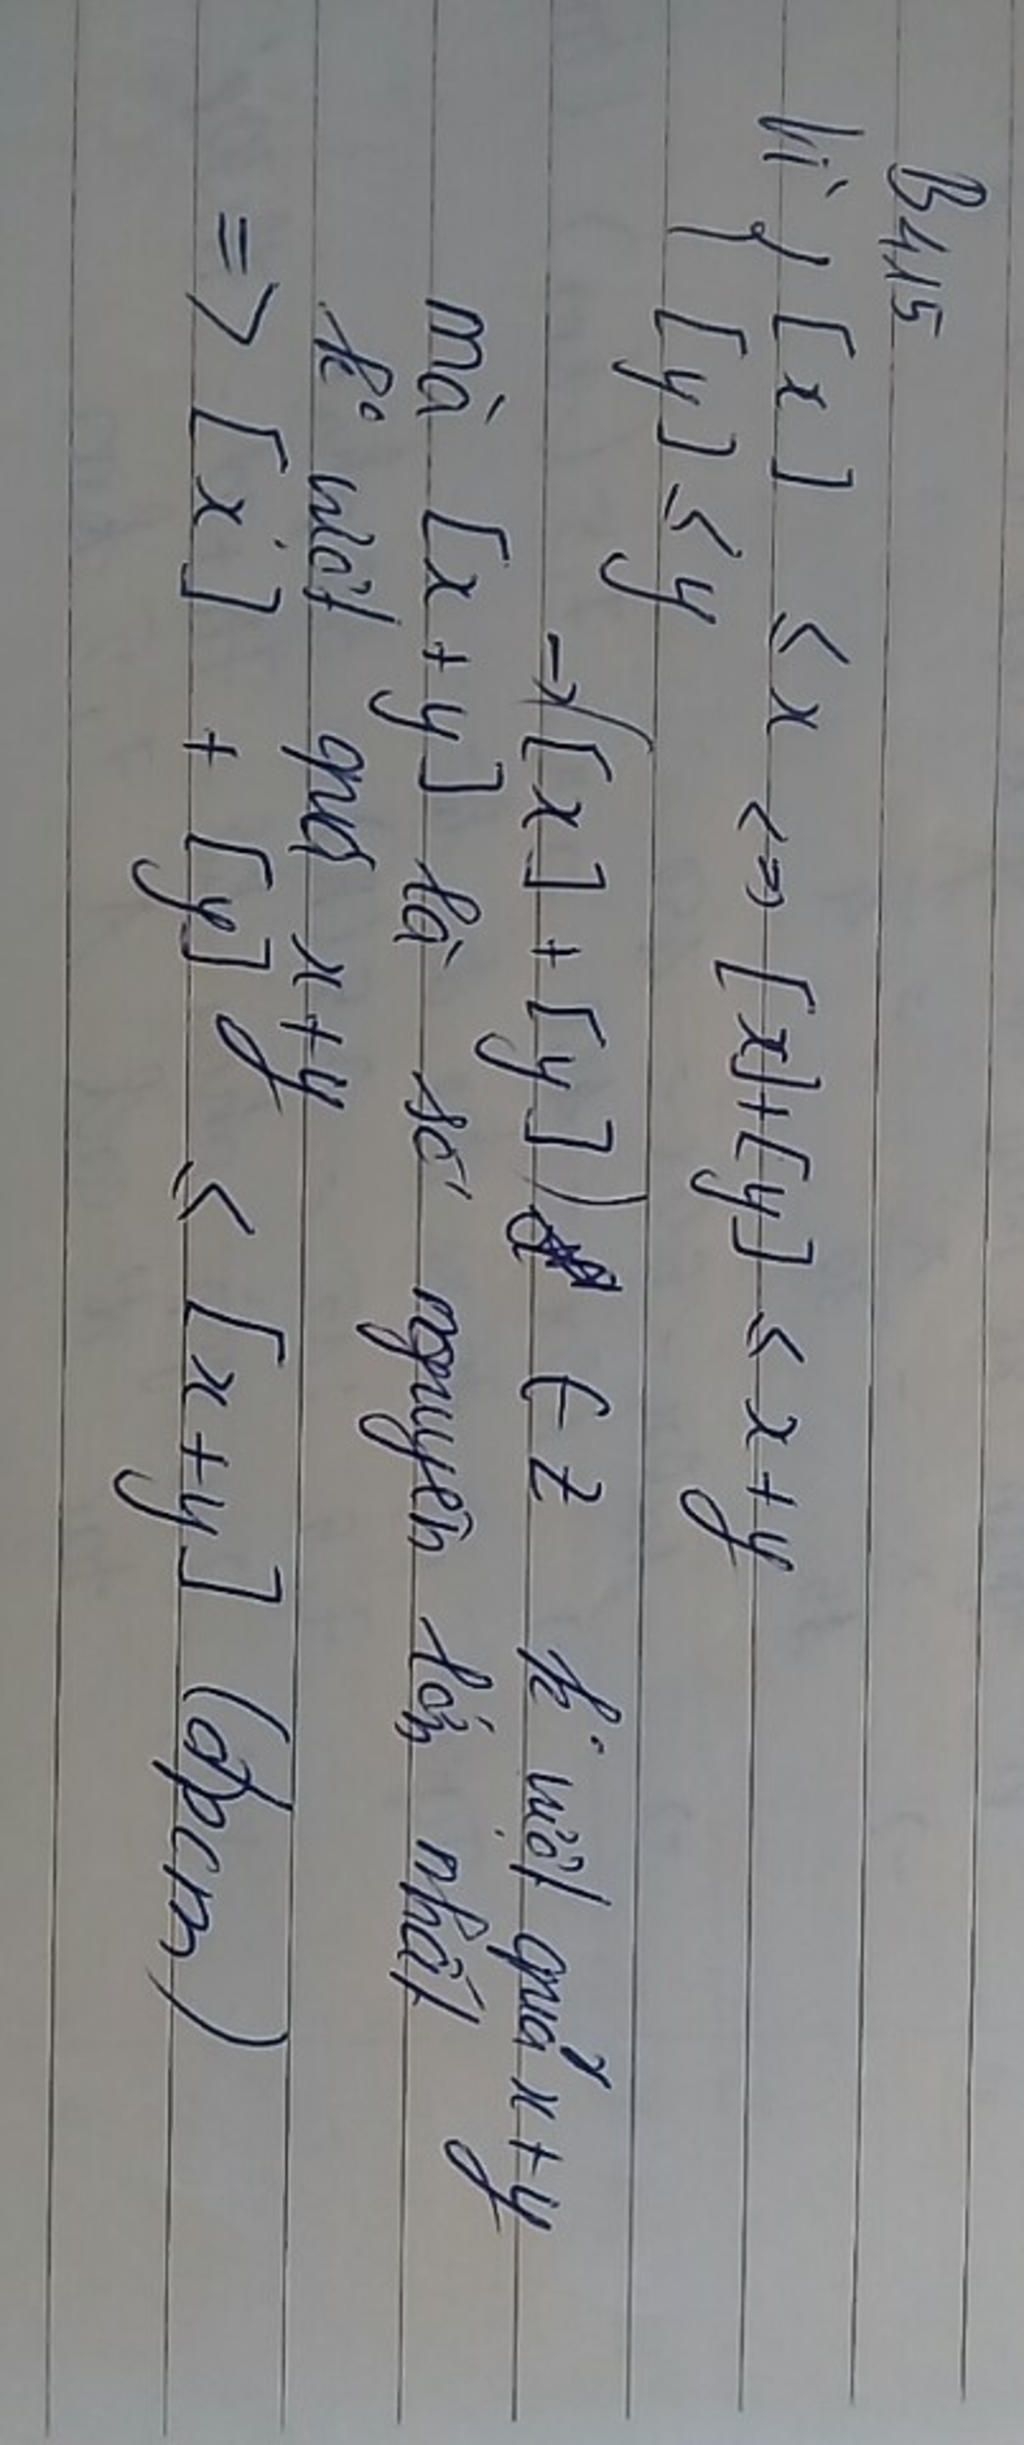 B4.15
Vì { [x] ≤ x <=> [x]+[y] ≤ x+y
[y] ≤ y
→([x] + [y]) ∈ Z k° vượt quá x+y
mà [x+y] là số nguyên lớn nhất
k° vượt quá x+y
=> [x] + [y] ≤ [x+y] (đpcm)